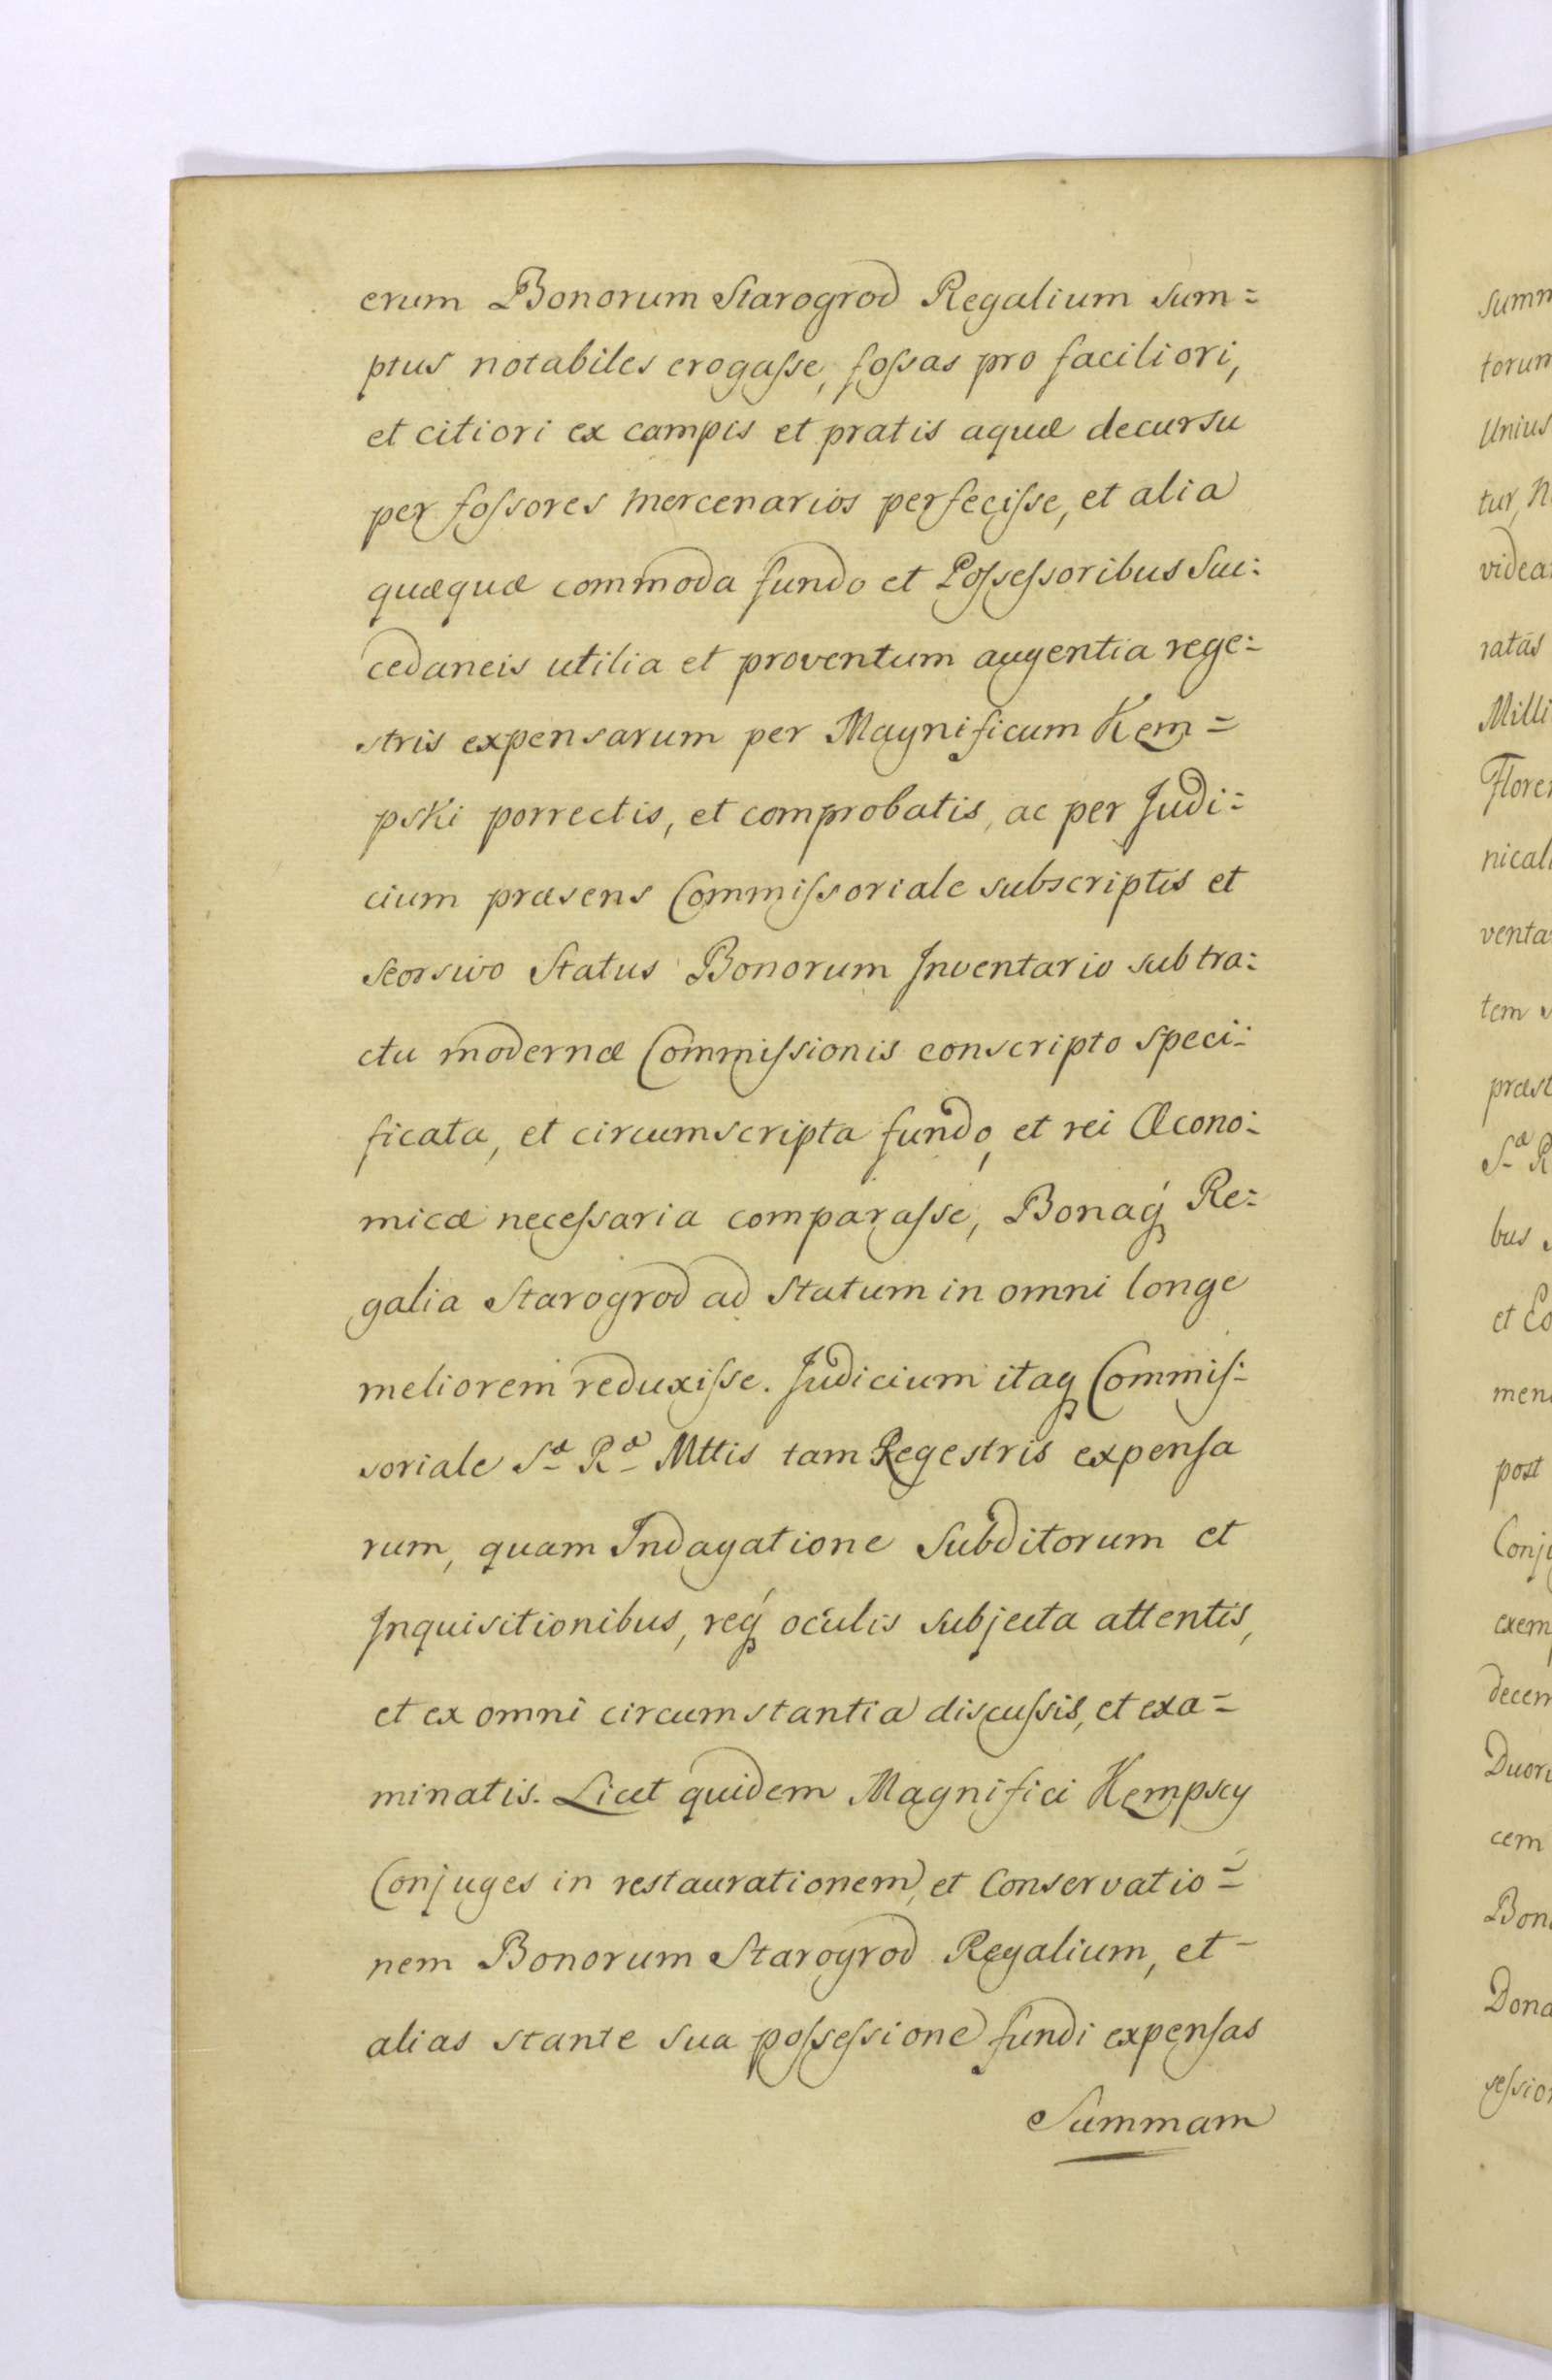 erum Bonorum Starogrod Regalium sum=
ptus notabiles erogaſse, foſsas pro faciliori,
et citiori ex campis et pratis aquæ decursu
per foſsores mercenarios perfeciſse, et alia
quæquæ commoda fundo et Poſseſsoribus Suc:
cedaneis utilia et proventum augentia rege:
stris expensarum per Magnificum Kem=
pski porrectis, et comprobatis, ac per Judi:
cium præsens Commiſsoriale subscriptis et
seorsivo Status Bonorum Inventario sub tra:
ctu modernæ Commiſsionis conscripto speci:
ficata, et circumscripta fundo, et rei Œcono:
micæ neceſsaria comparaſse, Bonaq́ Re:
galia Starogrod ad statum in omni longe
meliorem reduxiſse. Judicium itaq Commiſ:
soriale Sæ Ræ Mttis tam Regestris expenſa
rum, quam Indagatione Subditorum et
Inquisitionibus, req́ oculis subjecta attentis,
et ex omni circumstantia discuſsis, et exa=
minatis. Licet quidem Magnifici Kempscy
Conjuges in restaurationem, et Conservatio=
nem Bonorum Starogrod Regalium, et
alias stante sua poſseſsione fundi expenſas
Summam
summ
torum
Unius
tur, n
videa
ratas
Milli
Flore
nical
venta
tem
præst
Sæ R
bus
et Co
men
post
Conj
exem
decem
Duor
cem
Bon
Dona
seſsio